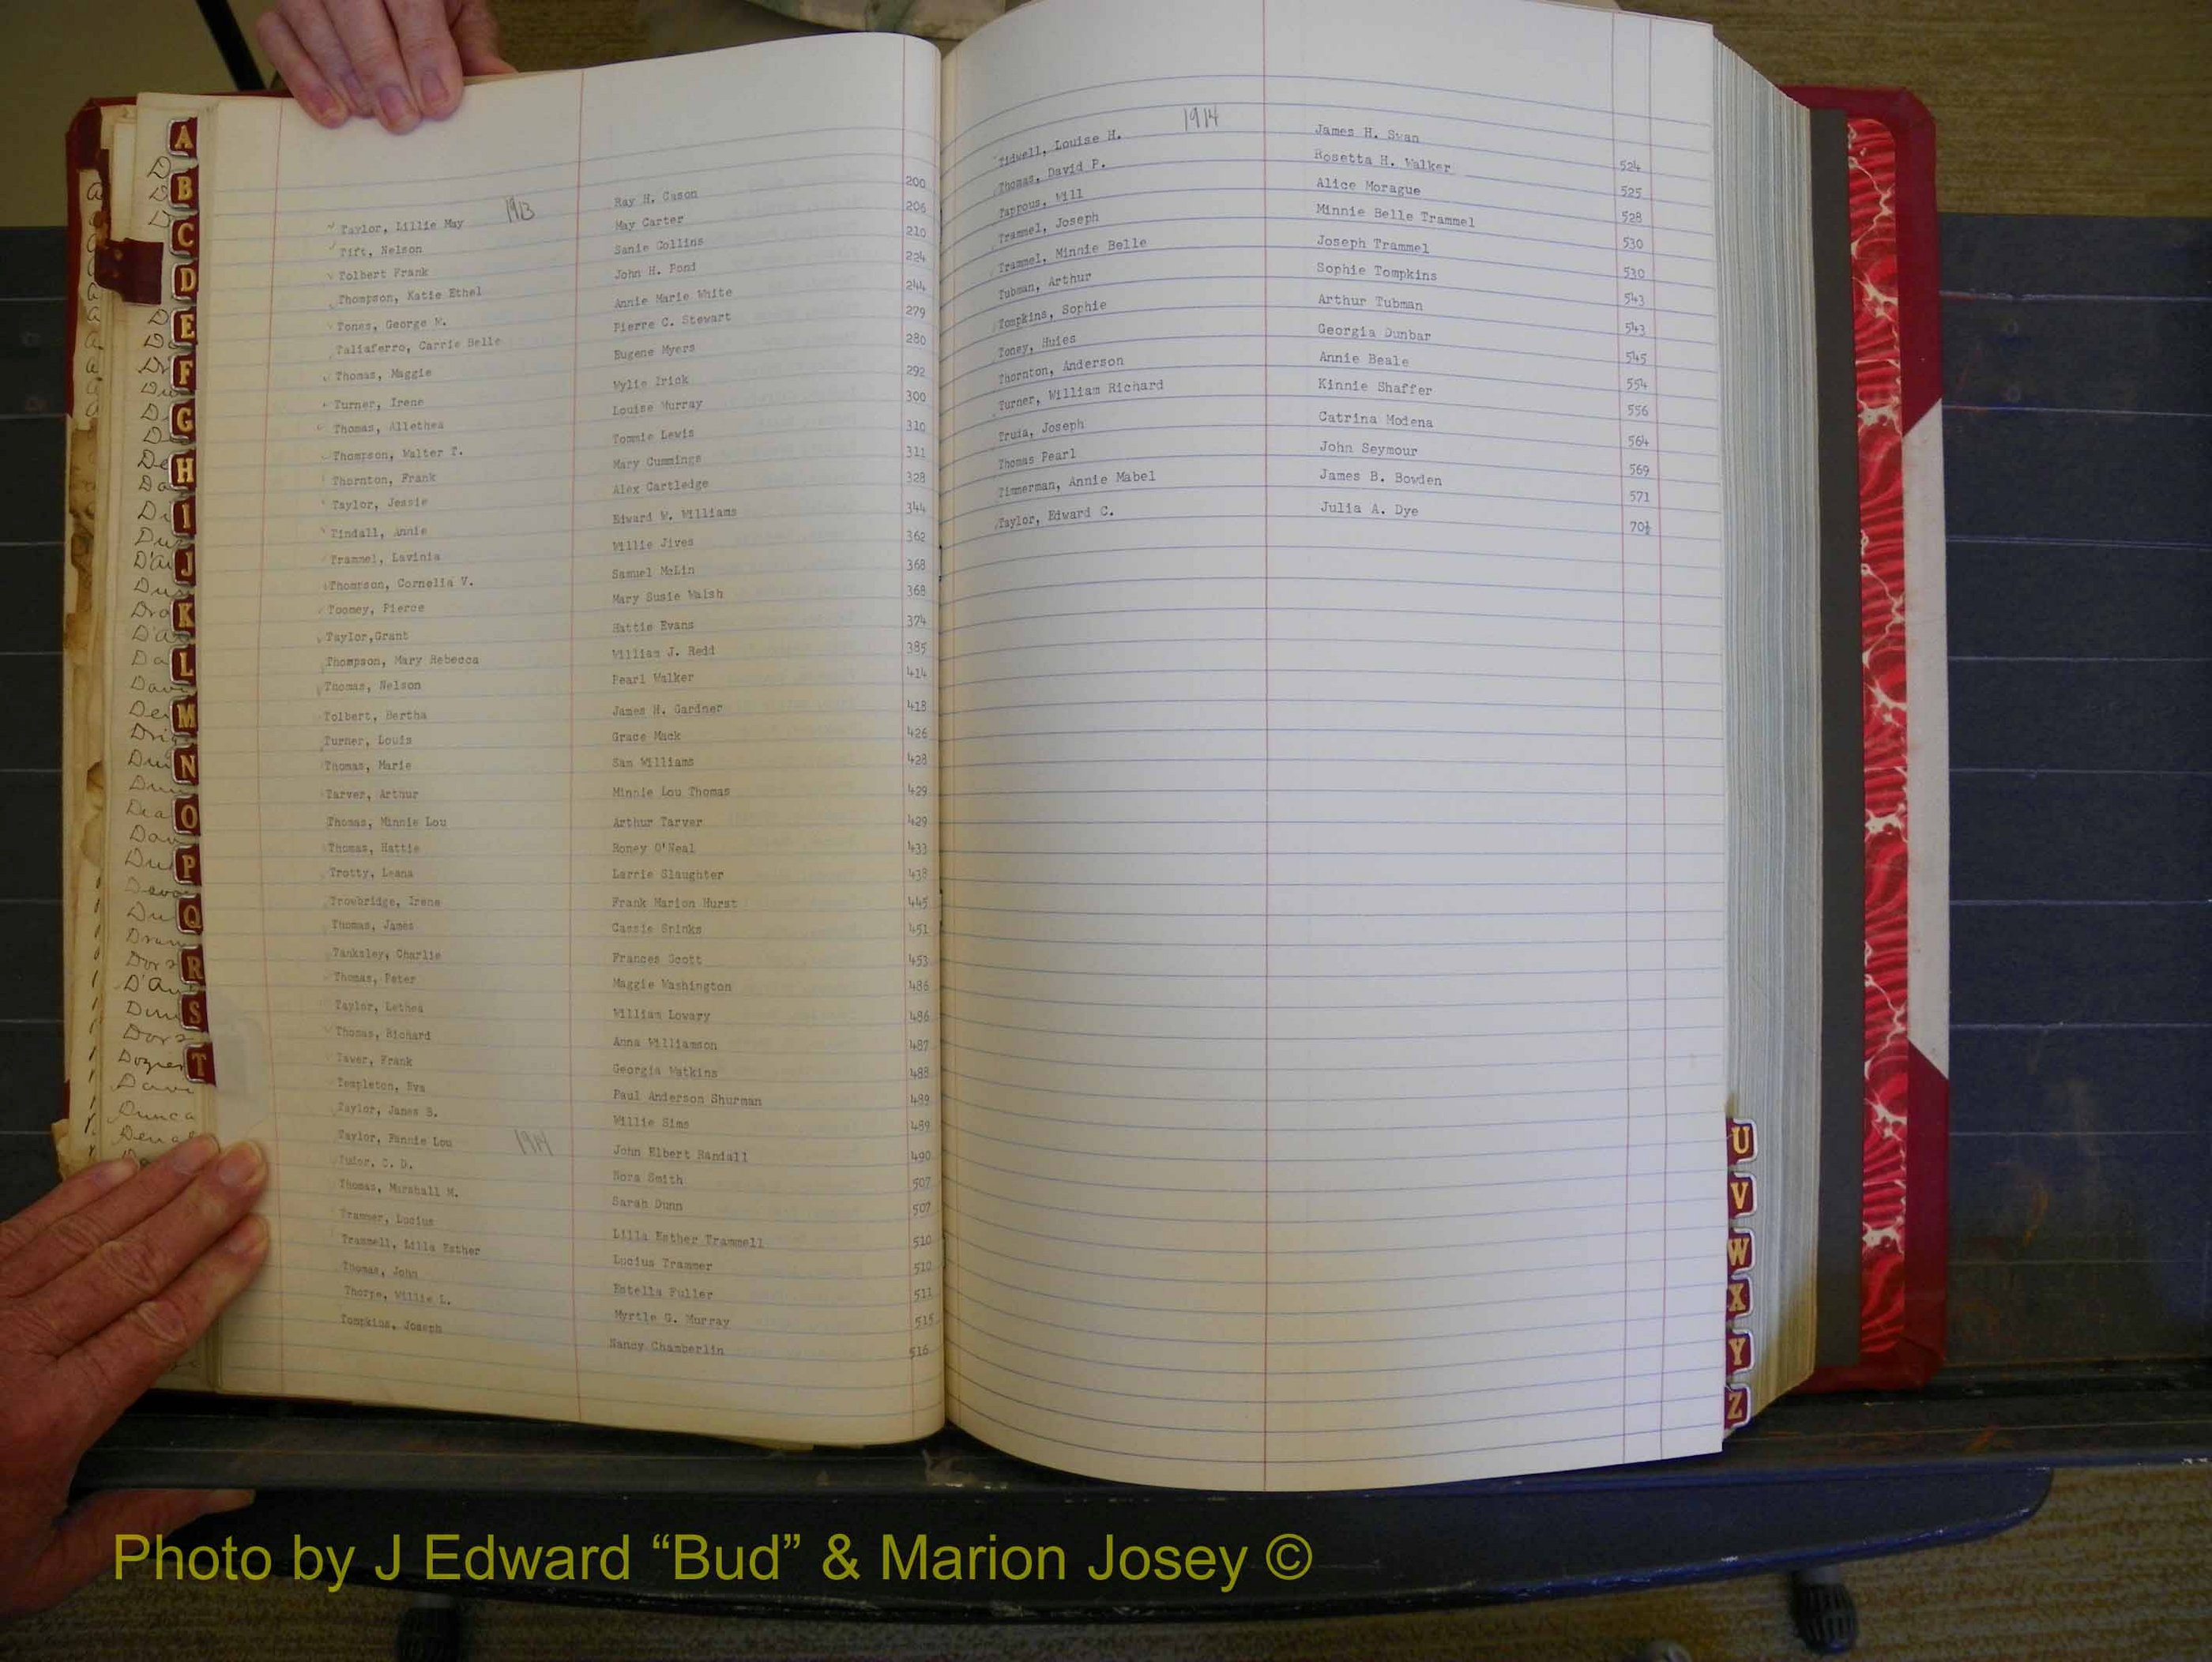 1913
Taylor, Lillie May Ray H. Cason 200
Tift, Nelson May Carter 206
Tolbert Frank Sanie Collins 210
Thompson, Katie Ethel John H. Pond 224
Tones, George W. Annie Marie White 244
Taliaferro, Carrie Belle Pierre C. Stewart 279
Thomas, Maggie Eugene Myers 280
Turner, Irene Wylie Irick 292
Thomas, Allethea Louise Murray 300
Thompson, Walter T. Tommie Lewis 310
Thornton, Frank Mary Cummings 311
Taylor, Jessie Alex Cartledge 328
Tindall, Annie Edward W. Williams 344
Trammel, Lavinia Willie Jives 362
Thompson, Cornelia V. Samuel McLin 368
Toomey, Pierce Mary Susie Walsh 368
Taylor,Grant Hattie Evans 374
Thompson, Mary Rebecca William J. Redd 385
Thomas, Nelson Pearl Walker 414
Tolbert, Bertha James H. Gardner 418
Turner, Louis Grace Mack 426
Thomas, Marie Sam Williams 428
Tarver, Arthur Minnie Lou Thomas 429
Thomas, Minnie Lou Arthur Tarver 429
Thomas, Hattie Roney O'Neal 433
Trotty, Leana Larrie Slaughter 438
Trowbridge, Irene Frank Marion Hurst 445
Thomas, James Cassie Spinks 451
Tanksley, Charlie Frances Scott 453
Thomas, Peter Maggie Washington 486
Taylor, Lethea William Lowary 486
Thomas, Richard Anna Williamson 487
Tawer, Frank Georgia Watkins 488
Templeton, Eva Paul Anderson Shurman 489
Taylor, James S. Willie Sims 489
Taylor, Fannie Lou 1914 John Elbert Randall 490
Tudor, C. D. Nora Smith 507
Thomas, Marshall M. Sarah Dunn 507
Trammer, Lucius Lilla Esther Trammell 510
Trammell, Lilla Esther Lucius Trammer 510
Thomas, John Estella Fuller 511
Thorpe, Willie L. Myrtle G. Murray 515
Tompkins, Joseph Nancy Chamberlin 516
1914
Tidwell, Louise H. James H. Swan 524
Thomas, David P. Rosetta H. Walker 525
Tappous, Will Alice Morague 528
Trammel, Joseph Minnie Belle Trammel 530
Trammel, Minnie Belle Joseph Trammel 530
Tubman, Arthur Sophie Tompkins 543
Tompkins, Sophie Arthur Tubman 543
Toney, Huies Georgia Dunbar 545
Thornton, Anderson Annie Beale 554
Turner, William Richard Kinnie Shaffer 556
Truia, Joseph Catrina Modena 564
Thomas Pearl John Seymour 569
Timmerman, Annie Mabel James B. Bowden 571
Taylor, Edward C. Julia A. Dye 70½
A
B
C
D
E
F
G
H
I
J
K
L
M
N
O
P
Q
R
S
T
U
V
W
X
Y
Z
Photo by J Edward “Bud” & Marion Josey ©